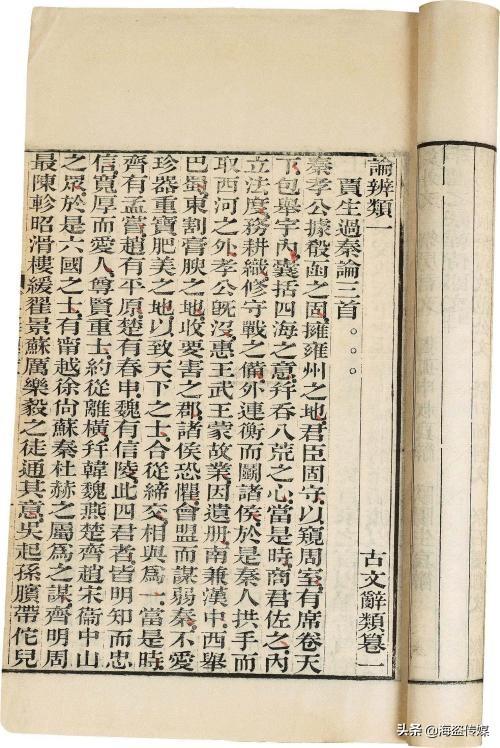 論辨類一 古文辭類篹一
賈生過秦論三首。。。
秦孝公據殽函之固擁雍州之地君臣固守以窺周室有席卷天
下包舉宇內囊括四海之意幷吞八荒之心當是時商君佐之內
立法度務耕織修守戰之備外連衡而鬭諸侯於是秦人拱手而
取西河之外孝公旣沒惠王武王蒙故業因遺冊南兼漢中西舉
巴蜀東割膏腴之地收要害之郡諸侯恐懼會盟而謀弱秦不愛
珍器重寶肥美之地以致天下之士合從締交相與爲一當是時
齊有孟嘗趙有平原楚有春申魏有信陵此四君者皆明知而忠
信寬厚而愛人尊賢重士約從離橫幷韓魏燕楚齊趙宋衞中山
之眾於是六國之士有甯越徐尙蘇秦杜赫之屬爲之謀齊明周
最陳軫昭滑樓緩翟景蘇厲樂毅之徒通其意吳起孫臏帶佗兒
头条 @海盗传媒